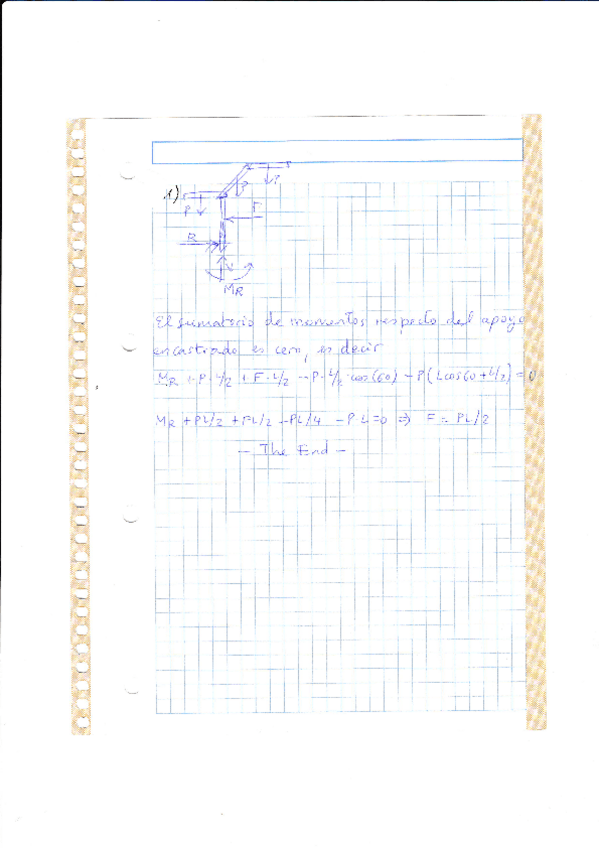 1)
P
P
P
F
R
V
MR
El sumatorio de momentos respecto del apoyo
encastrado es cero, es decir
MR + P·L/2 + F·L/2 - P·L/2·cos(60) - P(Lcos60+L/2) = 0
MR + PL/2 + FL/2 - PL/4 - P·L = 0 ⇒ F = PL/2
- The End -